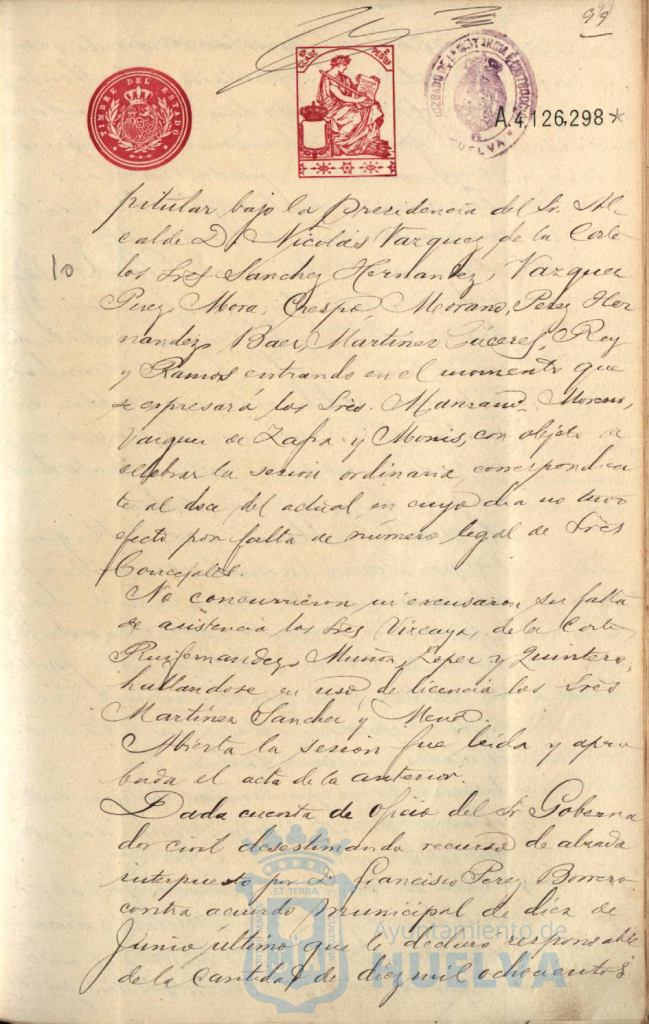 99
TIMBRE DEL ESTADO
10ª CLASE 2 PESETAS
HUELVA
A.4.126.298*
pitular bajo la Presidencia del Sr. Al-
calde D. Nicolás Vazquez de la Corte
10
los Sres Sanchez Hernandez, Vazquez
Perez, Mora, Crespo, Morano, Perez Her
nandez, Baer, Martinez Cáceres, Rey
y Ramos entrando en el momento que
se espresará los Sres. Manzano, Moreno,
Vazquez de Zafra y Monis, con objeto de
celebrar la sesion ordinaria, correspondien
te al doce del actual, en cuyo dia no tuvo
efecto por falta de número legal de Sres
Concejales.
No concurrieron ni escusaron su falta
de asistencia los Sres Vizcaya, de la Corte,
Ruifernandez, Muñoz, Lopez y Quintero,
hallandose en uso de licencia los Sres
Martinez Sanchez y
Abierta la sesion fué leida y apro
bada el acta de la anterior.
Dada cuenta de oficio del Sr Goberna
dor civil desestimando recurso de alzada
interpuesto por D. Francisco Perez Borrero
contra acuerdo municipal de diez de
Junio último que le declaró responsable
de la cantidad de diez mil ochocientos
Ayuntamiento de
HUELVA